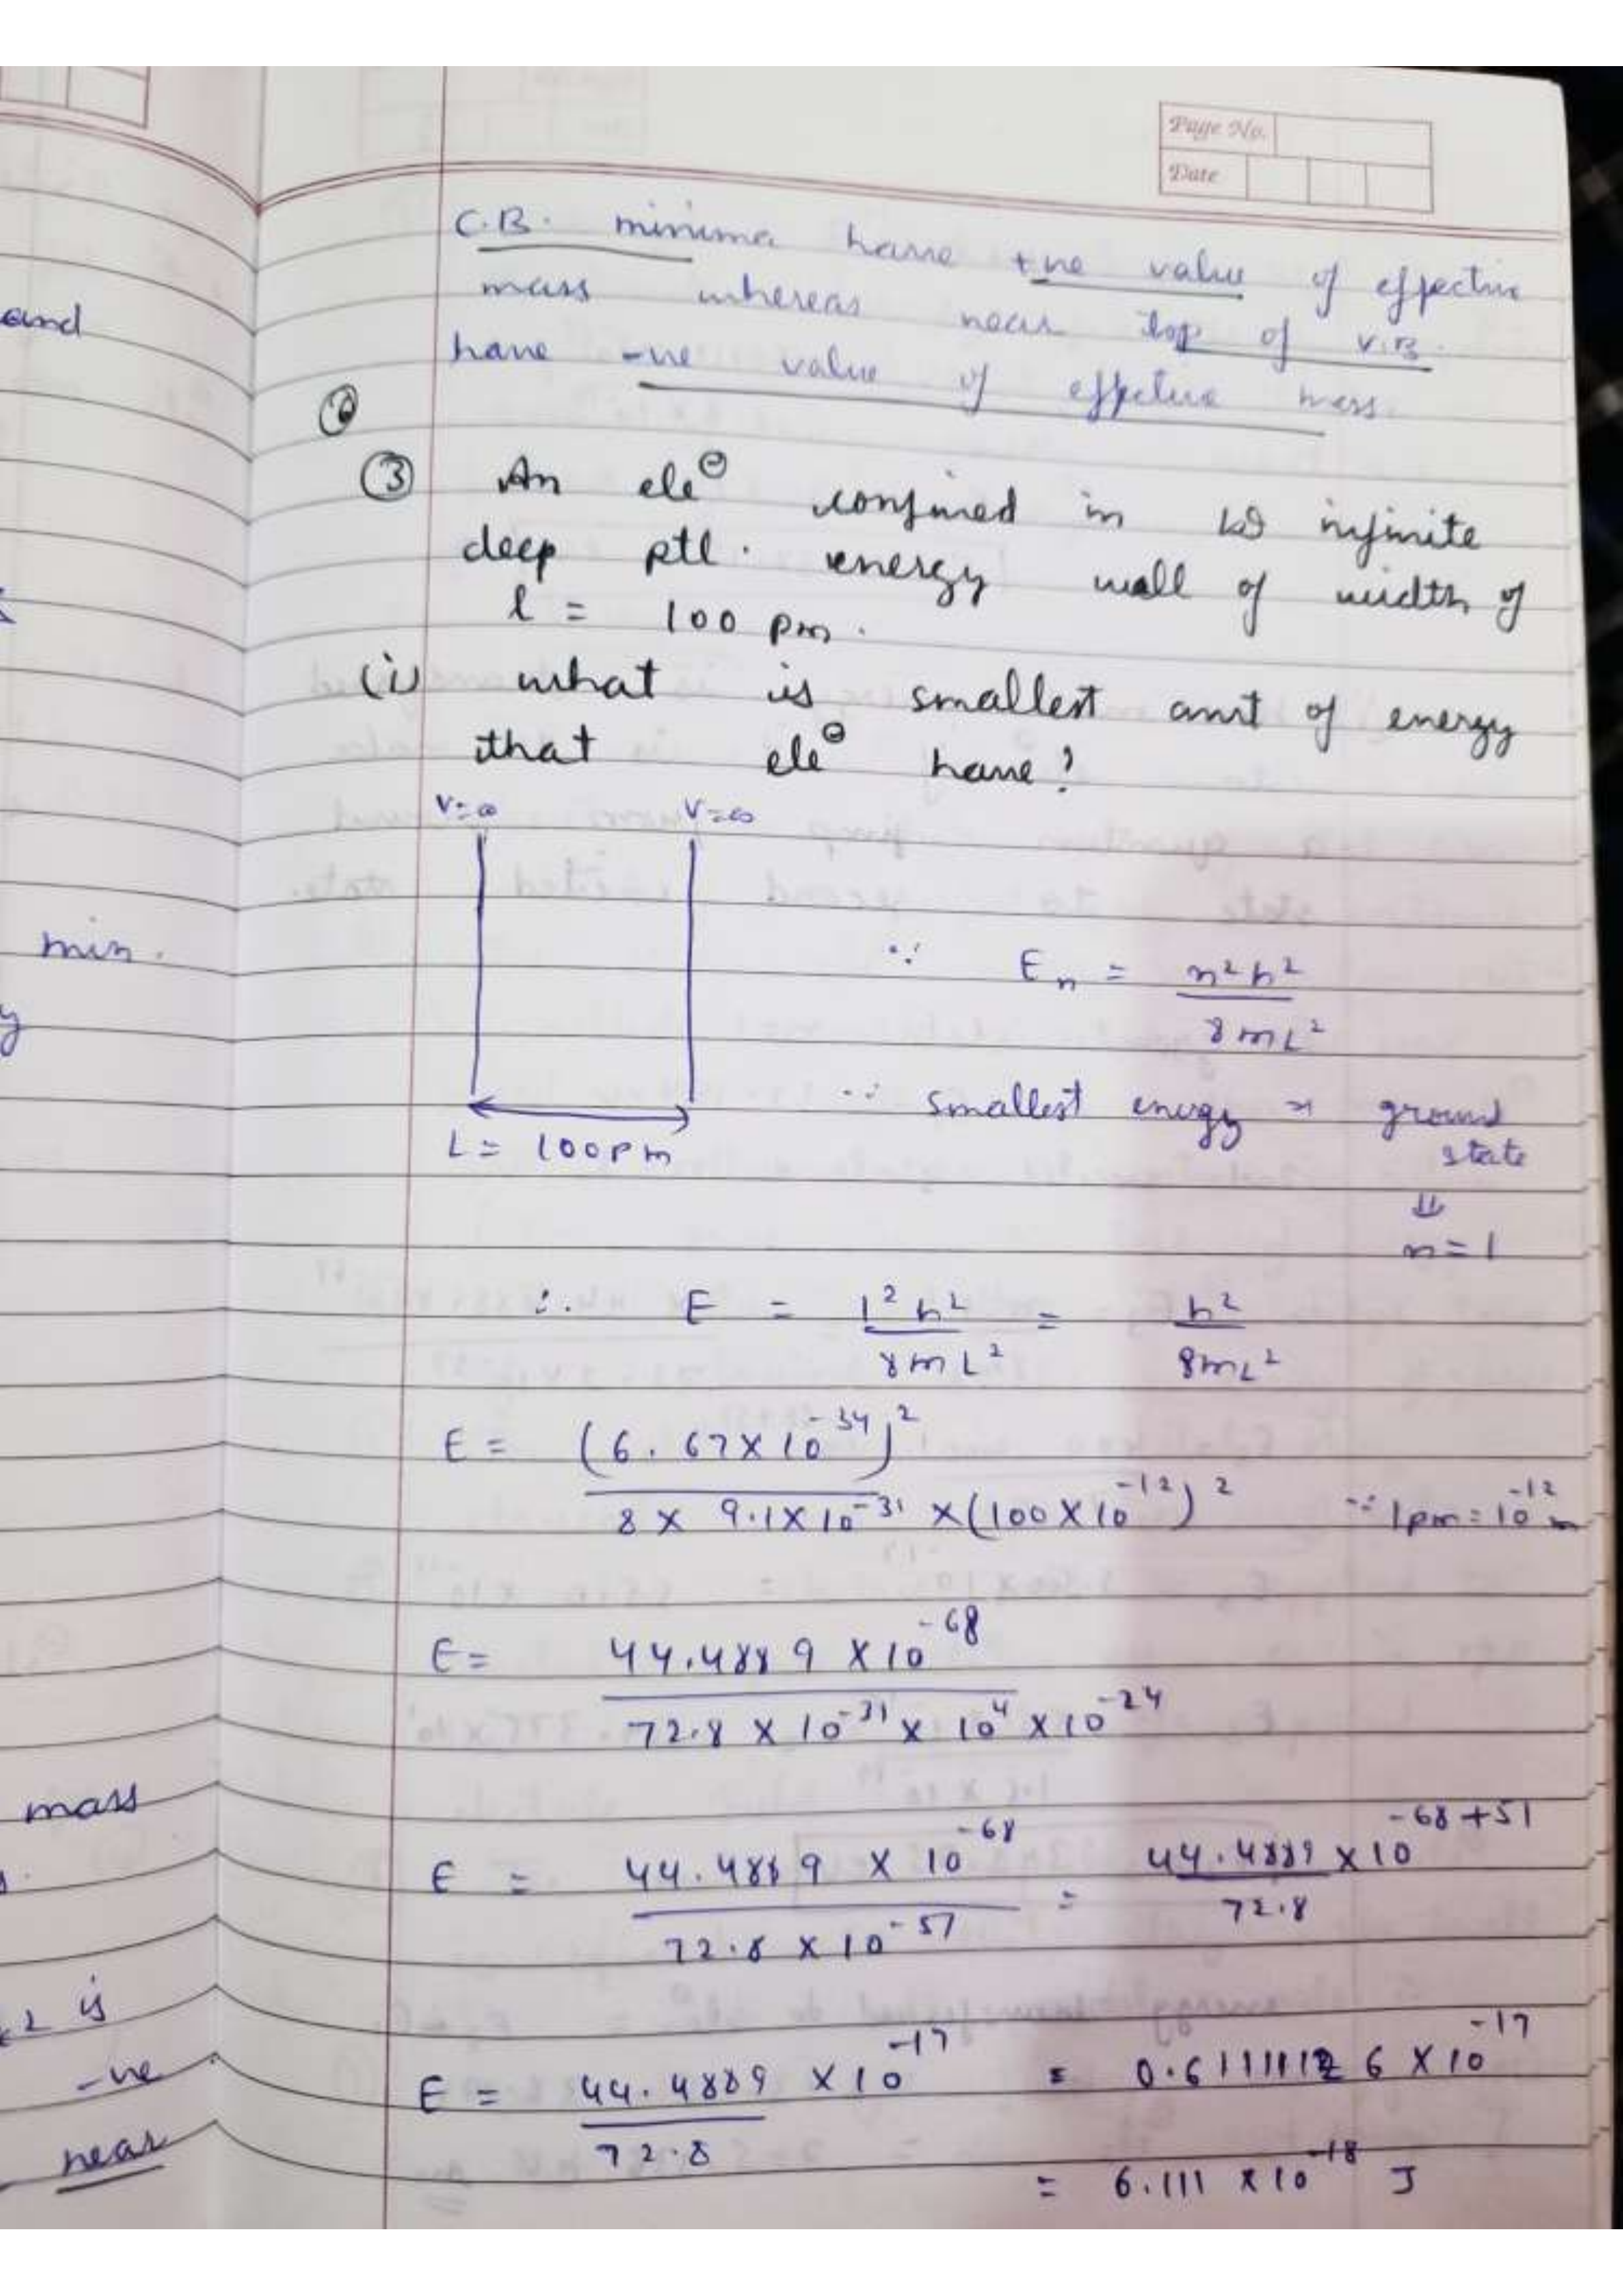 Page No.
Date
C.B. minima have +ve value of effective
mass whereas near top of V.B.
have -ve value of effective mass.
③ An ele⊖ confined in 1D infinite
deep ptl. energy well of width of
l = 100 pm.
(i) what is smallest amt of energy
that ele⊖ have?
V=∞ V=∞
∵ En = n²h² / 8mL²
L = 100pm
∵ smallest energy → ground
state
⇓
n=1
∴ E = 1²h² / 8mL² = h² / 8mL²
E = (6.67×10⁻³⁴)² / 8 × 9.1×10⁻³¹ ×(100×10⁻¹²)² ∵ 1pm=10⁻¹² m
E = 44.4889 ×10⁻⁶⁸ / 72.8 × 10⁻³¹ × 10⁴ ×10⁻²⁴
E = 44.4889 × 10⁻⁶⁸ / 72.8 × 10⁻⁵¹ = 44.4889 ×10⁻⁶⁸⁺⁵¹ / 72.8
E = 44.4889 ×10⁻¹⁷ / 72.8 = 0.61111126 ×10⁻¹⁷
= 6.111 ×10⁻¹⁸ J
and
min.
y
mass
is
-ve
near